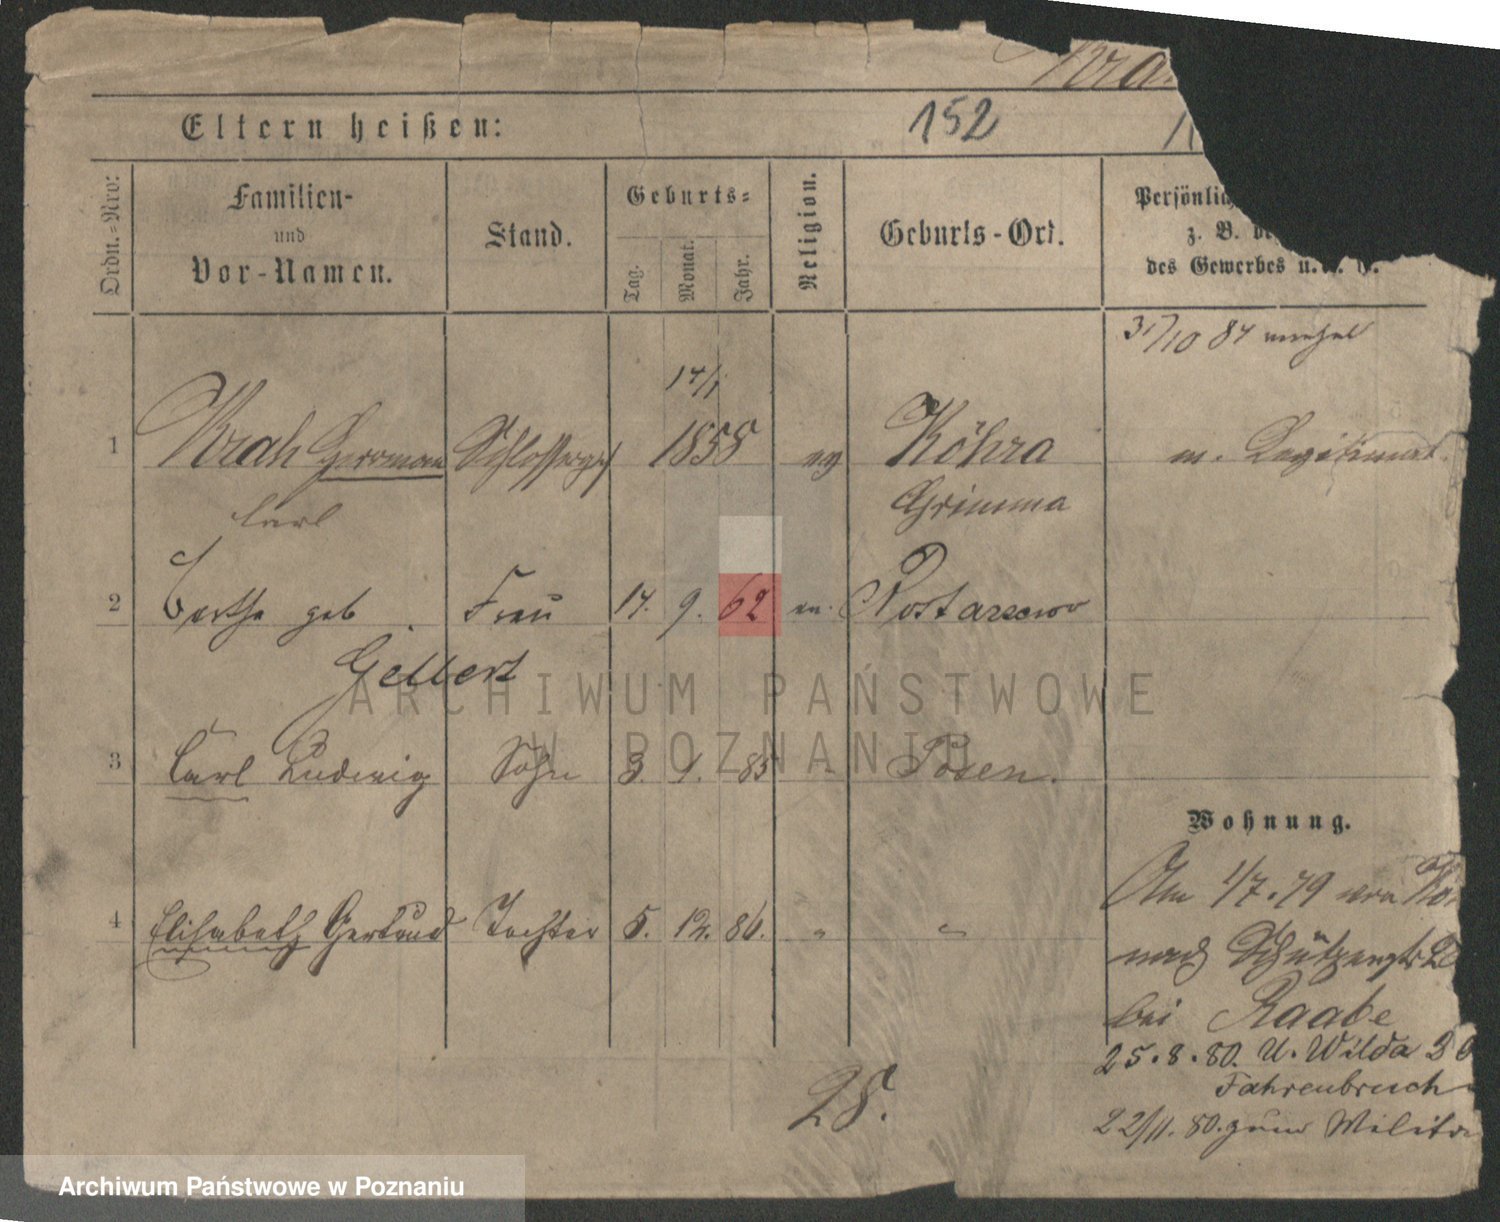 Kra
Eltern heißen:
152
Ordn.-Nro:
Familien-
und
Vor-Namen.
Stand.
Geburts-
Tag.
Monat.
Jahr.
Religion.
Geburts-Ort.
Persönlich
z. B.
des Gewerbes u.
31/10 84
14/1
1 Krah Herrmann Schlosserges 1858 ev Köhra m. Legitimat.
Carl Grimma
2 Bertha geb. Frau 14. 9. 62 ev. Kostarzewo
Gellert
3 Carl Ludwig Sohn 3. 1. 85 " Posen.
4 Elisabeth Gertrud Tochter 5. 12. 86. " "
Wohnung.
Am 1/7.79 von
nach Schützenstr
bei Raabe
25.8.80. U. Wilda
Fahrenbruch
22/11. 80. zum Militär
28.
ARCHIWUM PAŃSTWOWE
W POZNANIU
Archiwum Państwowe w Poznaniu